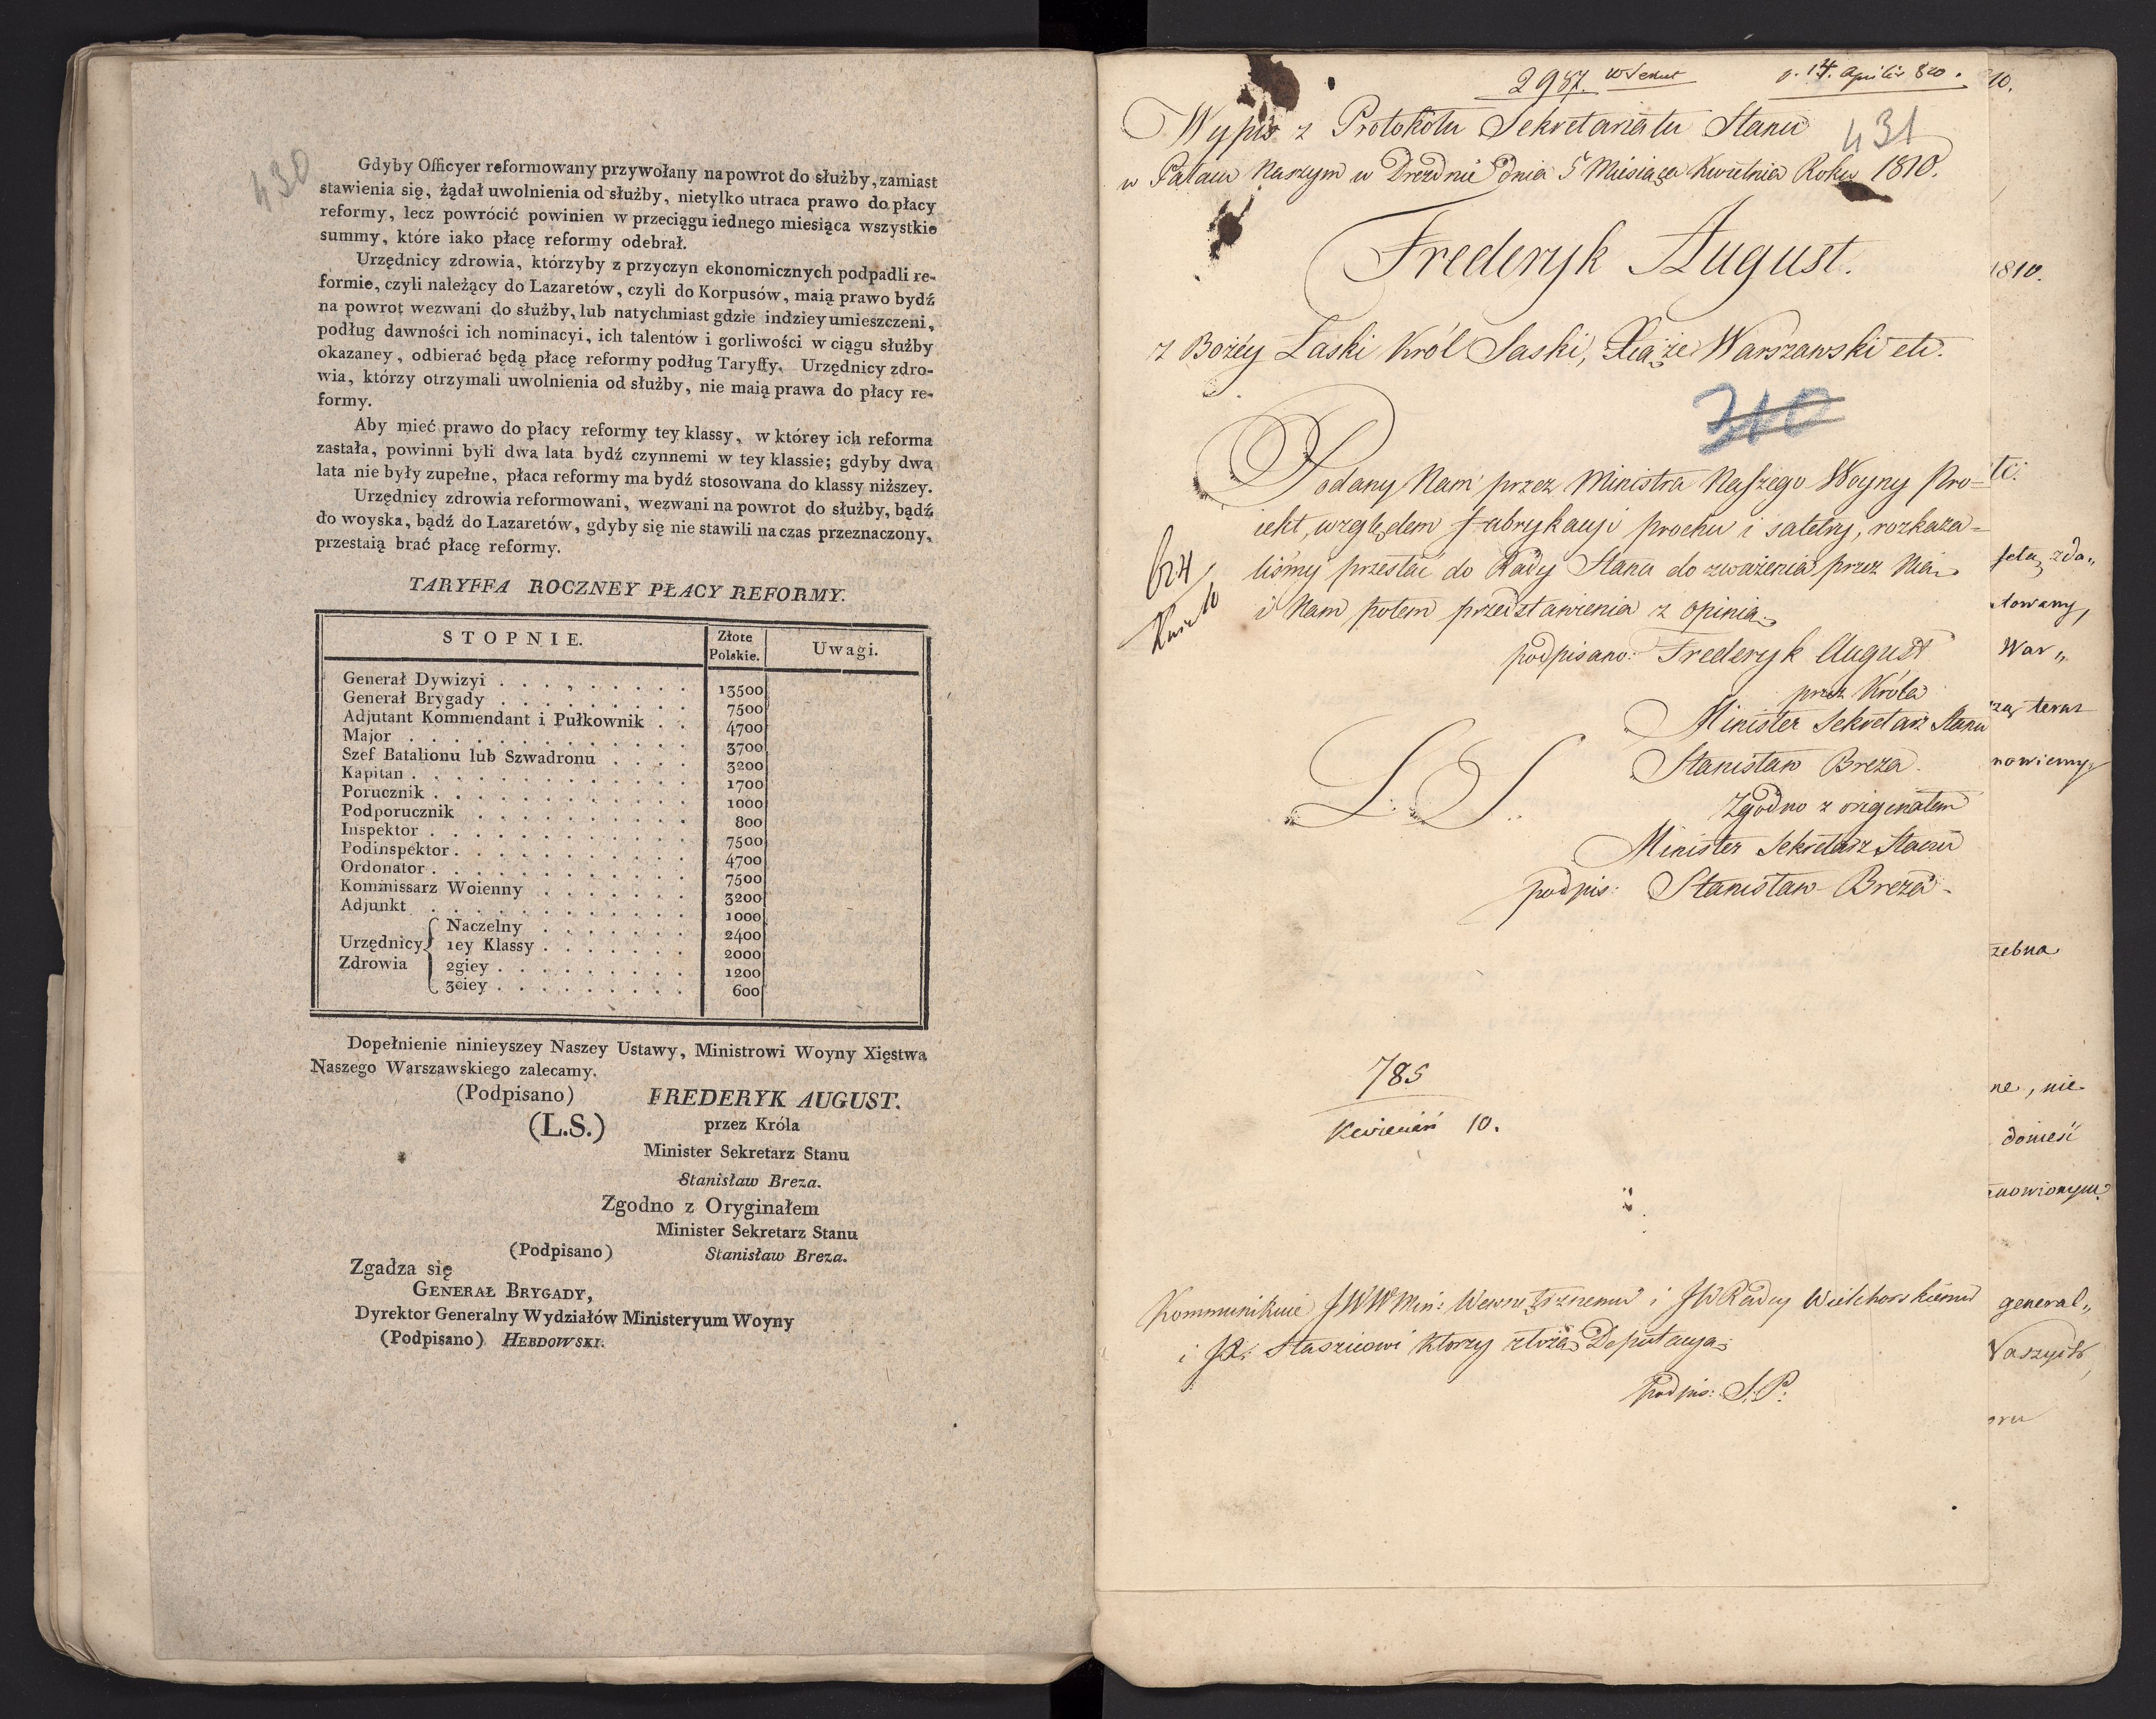 430
Gdyby Officyer reformowany przywołany na powrot do służby, zamiast
stawienia się, żądał uwolnienia od służby, nietylko utraca prawo do płacy
reformy, lecz powrócić powinien w przeciągu iednego miesiąca wszystkie
summy, które iako płacę reformy odebrał.
Urzędnicy zdrowia, którzyby z przyczyn ekonomicznych podpadli re-
formie, czyli należący do Lazaretów, czyli do Korpusów, maią prawo bydź
na powrot wezwani do służby, lub natychmiast gdzie indziey umieszczeni,
podług dawności ich nominacyi, ich talentów i gorliwości w ciągu służby
okazaney, odbierać będą płacę reformy podług Taryffy. Urzędnicy zdro-
wia, którzy otrzymali uwolnienia od służby, nie maią prawa do płacy re-
formy.
Aby mieć prawo do płacy reformy tey klassy, w którey ich reforma
zastała, powinni byli dwa lata bydź czynnemi w tey klassie; gdyby dwa
lata nie były zupełne, płaca reformy ma bydź stosowana do klassy niższey.
Urzędnicy zdrowia reformowani, wezwani na powrot do służby, bądź
do woyska, bądź do Lazaretów, gdyby się nie stawili na czas przeznaczony,
przestaią brać płacę reformy.
TARYFFA ROCZNEY PŁACY REFORMY.
STOPNIE. Złote Polskie. Uwagi.
Generał Dywizyi . . . . . . . . . 13500
Generał Brygady . . . . . . . . . 7500
Adjutant Kommendant i Pułkownik . . 4700
Major . . . . . . . . . . . . . 3700
Szef Batalionu lub Szwadronu . . . . 3200
Kapitan . . . . . . . . . . . . 1700
Porucznik . . . . . . . . . . . . 1000
Podporucznik . . . . . . . . . . 800
Inspektor . . . . . . . . . . . . 7500
Podinspektor . . . . . . . . . . . 4700
Ordonator . . . . . . . . . . . . 7500
Kommissarz Woienny . . . . . . . 3200
Adjunkt . . . . . . . . . . . . 1000
Urzędnicy Zdrowia { Naczelny . . . . . . . 2400
1ey Klassy . . . . . . . 2000
2giey . . . . . . . . . 1200
3ciey . . . . . . . . . 600
Dopełnienie ninieyszey Naszey Ustawy, Ministrowi Woyny Xięstwa
Naszego Warszawskiego zalecamy.
(Podpisano) FREDERYK AUGUST.
(L.S.) przez Króla
Minister Sekretarz Stanu
Stanisław Breza.
Zgodno z Oryginałem
Minister Sekretarz Stanu
(Podpisano) Stanisław Breza.
Zgadza się
GENERAŁ BRYGADY,
Dyrektor Generalny Wydziałów Ministeryum Woyny
(Podpisano) HEBDOWSKI.
2987. 14. Aprilis 810.
Wypis z Protokołu Sekretariatu Stanu
431
w Pałacu Naszym w Dreźnie dnia 5 Miesiąca Kwietnia Roku 1810.
Frederyk August.
z Bożéy Łaski Król Saski, Xiąże Warszawski etc.
310
Podany Nam przez Ministra Naszego Woyny Pro-
iekt, względem fabrykacyi prochu i saletry, rozkaza-
liśmy przesłać do Rady Stanu do zważenia przez Nią
i Nam potem przedstawienia z opinią.
podpisano: Frederyk August
przez Króla
Minister Sekretarz Stanu
L. S. Stanisław Breza.
Zgodno z originałem
Minister Sekretarz Stanu
podpis: Stanisław Breza.
785
Kwiecień 10.
Kommunikuie JWW Min: Wewnętrznemu i JW Radcy Wielhorskiemu
i JX. Staszicowi którzy złożą Deputacyą
podpis: S. P.
10.
1810.
tc.
towany,
War„
teraz
nowiemy
zebna
ne, nie
donieść
nowionym
general„